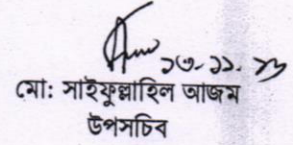 ১৩-১১-১৩
মো: সাইফুল্লাহিল আজম
উপসচিব